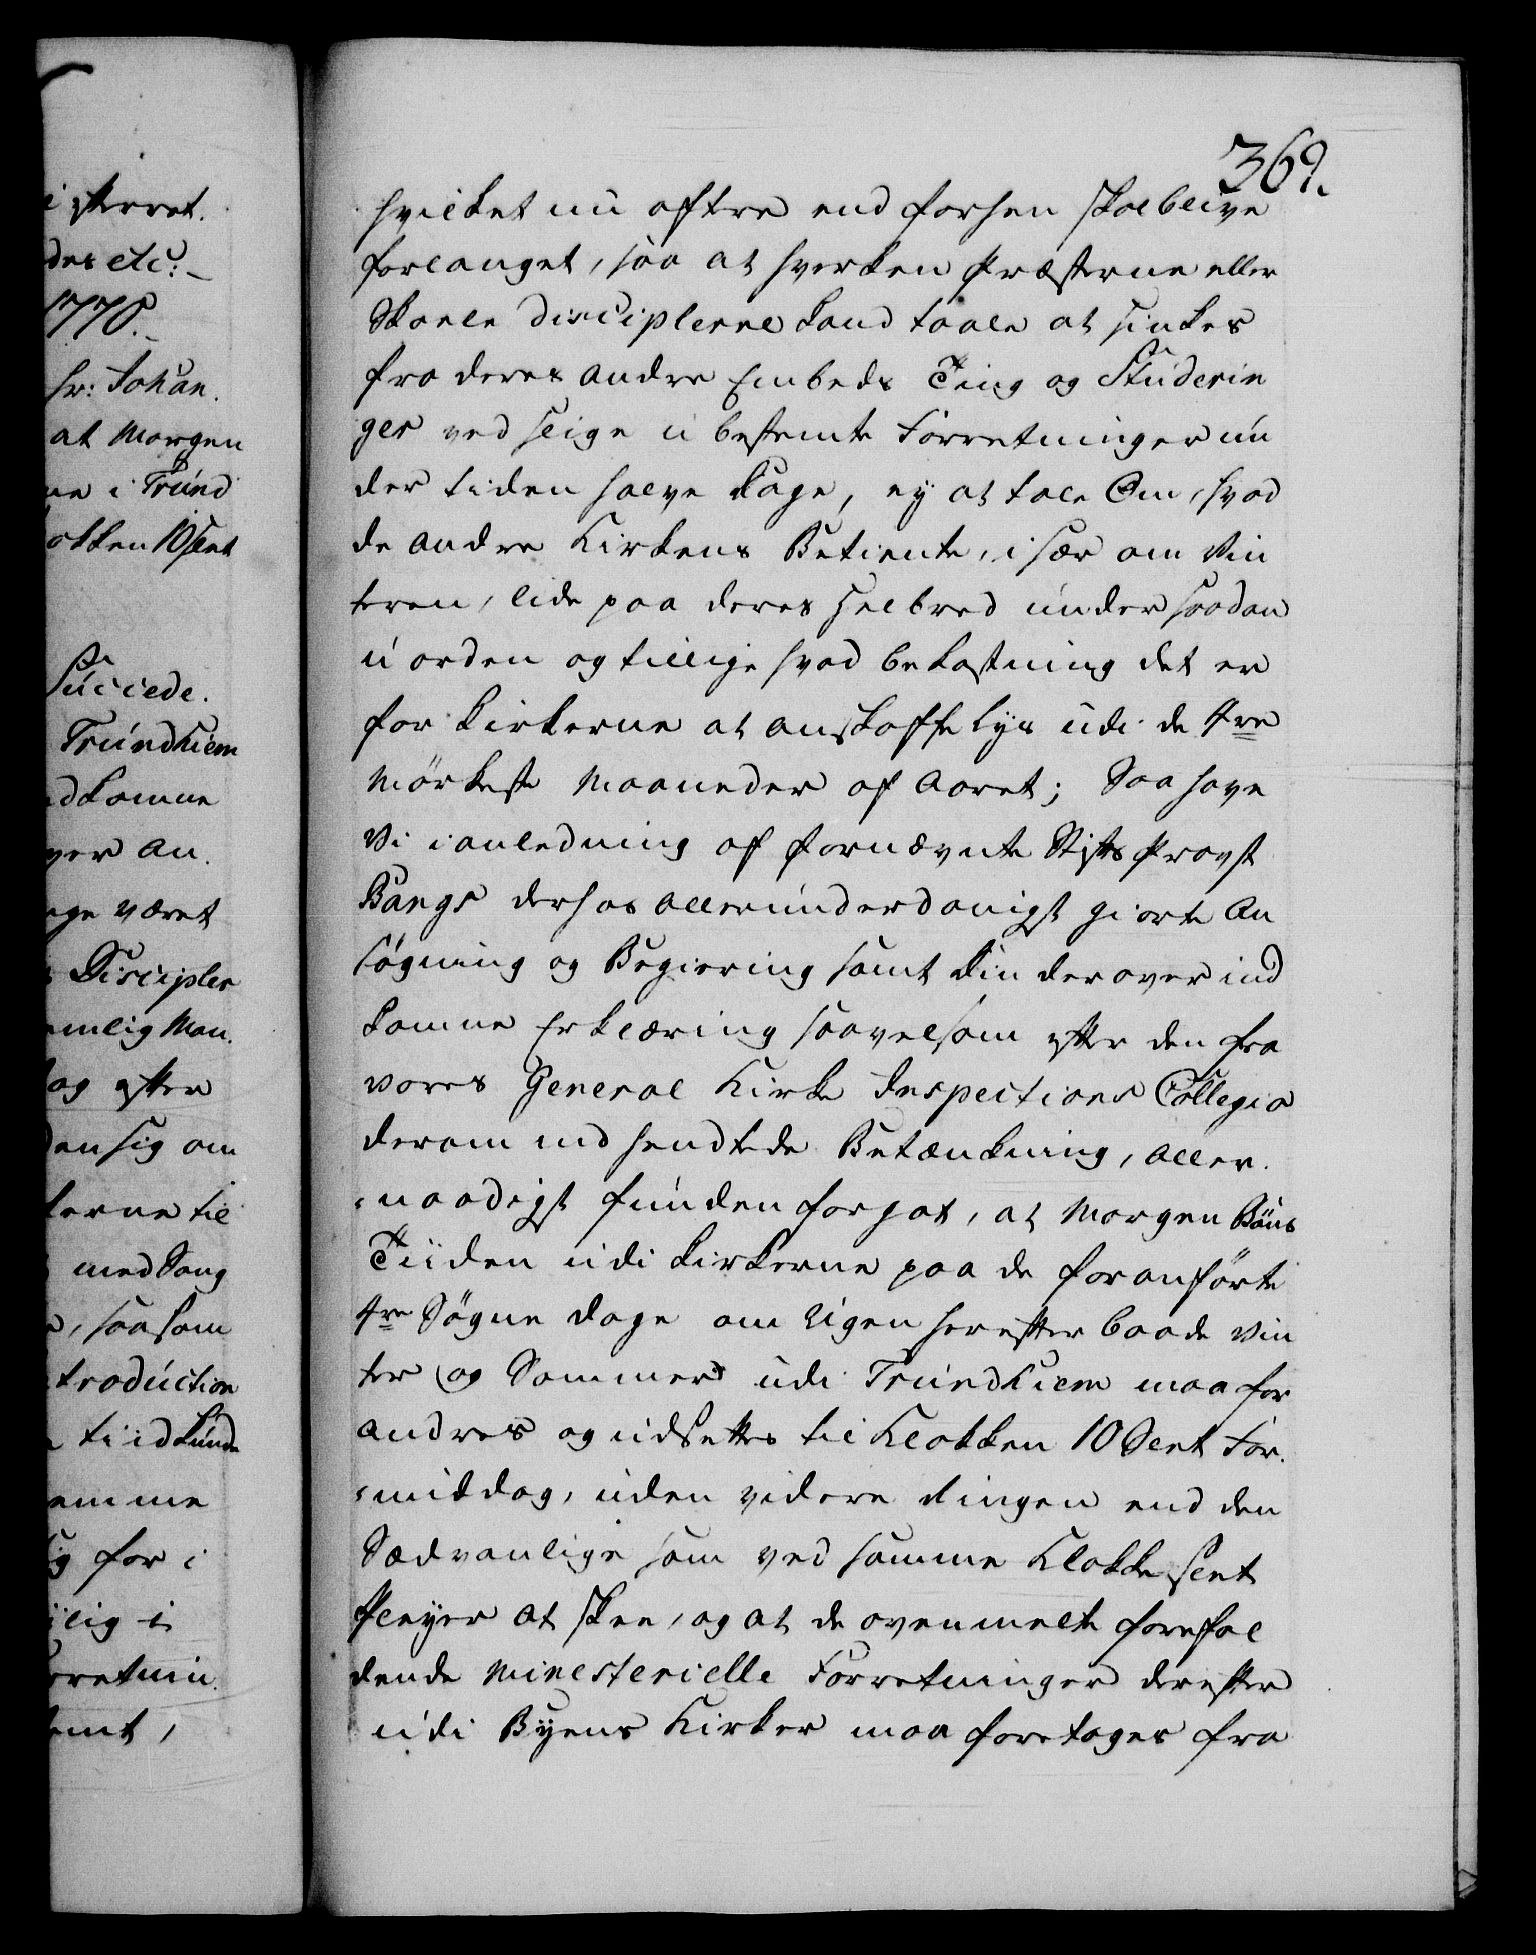 i ¬sterret.
des etc:
1778.
hr: Johan
at Morgen
ne i Trund
okken 10 slet
Succede.
Trundhiem
dkomne
ver An
ge været
Discipler
emlig Man
og efter
den sig om
kerne til
med Sang
, saasom
troduction
tiid kunde
emme
ig for i
lig i
rretnin
emt,
369.
hvilket nu oftere end forhen skal blive
forlanget, saa at hverken Præsterne eller
Skole Disciplerne kand taale at sinkes
fra deres andre Embeds Ting og Studerin
ger ved slige ubestemte Forretninger un
der tiden halve Dage, ey at tale Om, hvad
de andre Kirkens Betiente, især om Vin
teren, lide paa deres Helbred under saadan
uorden og tillige hvad bekostning det er
for Kirkerne at anskaffe Lys udi de 4re
Mörkeste Maaneder af Aaret; Saa have
Vi i anledning af fornævnte Stifts Provst
Bangs derhos allerunderdanigst giorte An
søgning og Begiering samt Din derover ind
komne Erklæring saavelsom efter den fra
vores General Kirke Inspections Collegio
derom indsendtede Betænkning, aller
naadigst funden forgot, at Morgen Böns
Tiiden udi Kirkerne paa de foranförte
4re Søgne Dage om Ugen herefter baade Vin
ter og Sommer udi Trundhiem maa for
andres og udsettes til Klokken 10 Slet For
middag, uden videre Ringen end den
Sædvanlige som ved samme Klokke Slet
Pleyer at skee, og at de ovenmelte forefal
dende Ministerielle Forretninger derefter
udi Byens Kirker maa foretages fra